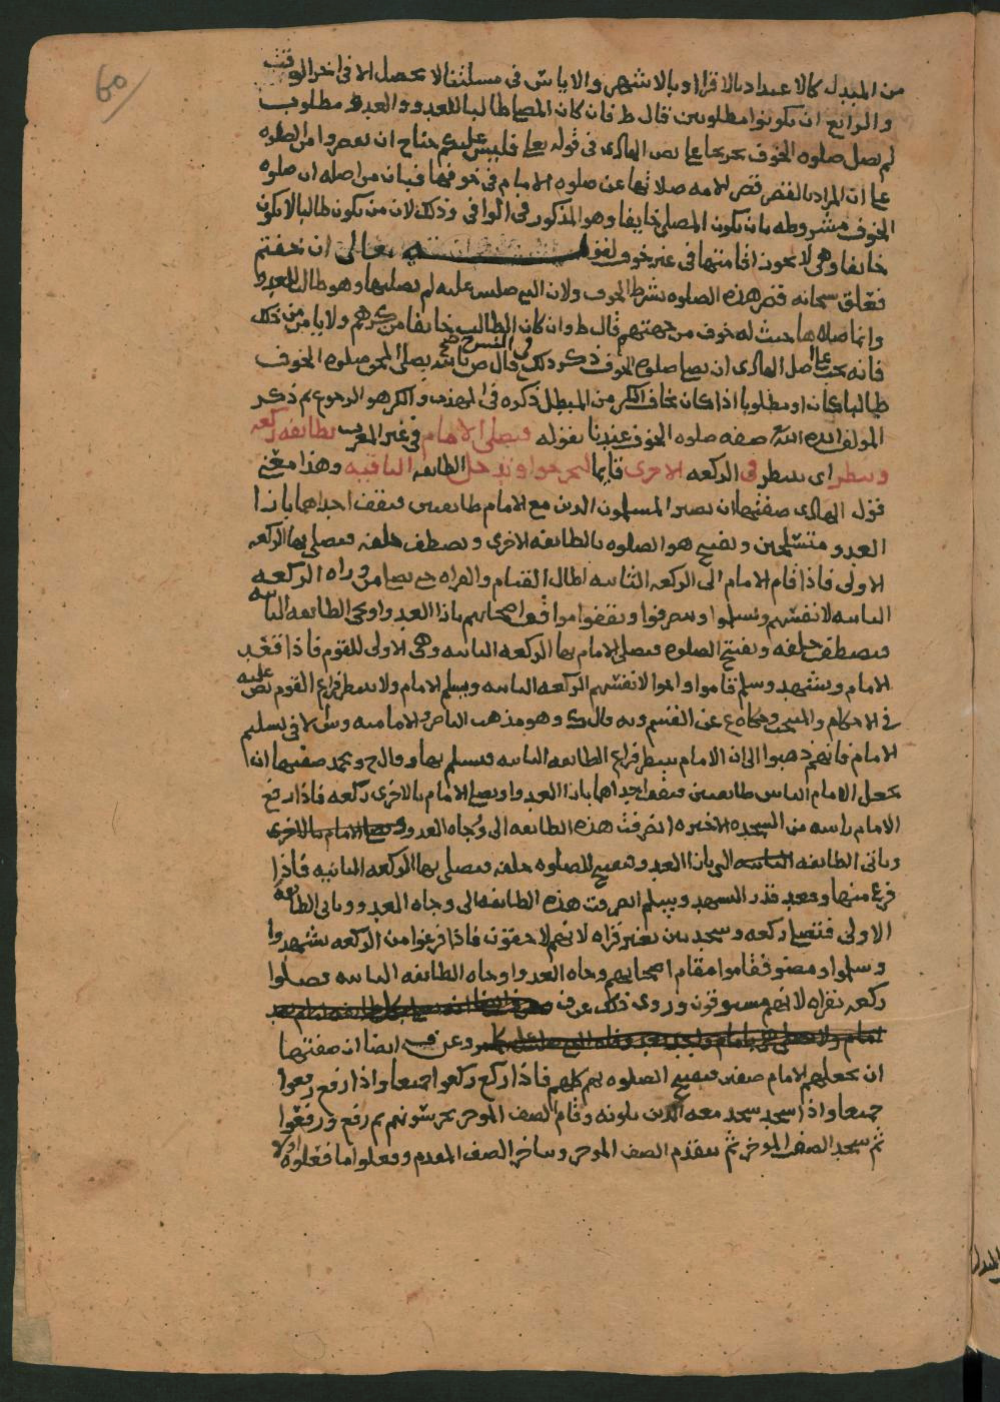 60
من المبدل كالاعتداد بالاقرا او بالاشهر والاياس في مسئلتنا لا يحصل الا في اخر الوقت
والرابع ان يكونوا مطلوبين قال ط فان كان المصلي طالبا للعدو والعدو مطلوب
لم يصل صلوه الخوف تخريجا على نص الهادي في قوله تعالى فليس عليكم جناح ان تقصروا من الصلوه
على ان المراد بالقصر قصر الامه صلاتها عن صلوه الامام في خوفها فبان من اصله ان صلوه
الخوف مشروطه بان يكون المصلي خايفا وهو المذكور في الوافي وذلك لان من يكون طالبا لا يكون
خايفا وهي لا يجوز اقامتها في غير خوف لقوله تعالى ان خفتم
فعلق سبحانه قصر هذه الصلوه بشرط الخوف ولان النبي صلى الله عليه لم يصليها وهو طالب للعدو
وانما صلاها حيث له خوف من جهتهم قال ط وان كان الطالب خايفا من كرهم ولا يامن من ذلك
فانه يجب على اصل الهادي ان يصلي صلوه الخوف ذكر ذلك في الشرح قال ص بالله يصلي المحق صلوه الخوف
طالبا كان او مطلوبا اذا كان يخاف الكر من المبطل ذكره في المهذب والكر هو الرجوع ثم ذكر
المولف ايده الله صفه صلوه الخوف عندنا بقوله فيصلي الامام في غير المغرب بطائفه ركعه
وينتظر اي ينتظر في الركعه الاخرى قايما ليخرجوا وتدخل الطائفه الباقيه وهذا معنى
قول الهادي صفتها ان يصير المسلمون الذين مع الامام طائفتين فيقف احداهما بازا
العدو متسلحين ويفتتح هو الصلوه بالطائفه الاخرى ويصطف خلفه فيصلي بها الركعه
الاولى فاذا قام الامام الى الركعه الثانيه اطال القيام والقراه حتى يصلي من وراه الركعه
الثانيه لانفسهم ويسلموا وينصرفوا ويقفوا مواقف اصحابهم بازا العدو وتجي الطائفه الثانيه
فيصطف خلفه ويفتتح الصلوه فيصلي الامام بها الركعه الثانيه وهي الاولى للقوم فاذا قعد
الامام وتشهد وسلم قاموا واتموا لانفسهم الركعه الثانيه ويسلم الامام ولا ينتظر فراغ القوم نص عليه
في الاحكام والمنتخب وحكاه ع عن القسم وبه قال ك وهو مذهب الناصر والاماميه وش الا في تسليم
الامام فانهم ذهبوا الى ان الامام ينتظر فراغ الطائفه الثانيه فيسلم بها وقال ح ومحمد صفتها ان
يجعل الامام الناس طائفتين فيقف احداهما بازا العدو ويصلي الامام بالاخرى ركعه فاذا رفع
الامام راسه من السجده الاخيره انصرفت هذه الطائفه الى وجاه العدو ويصلي الامام بالاخرى
وياتي الطائفه الثانيه التي بازا العدو وتفتتح للصلوه خلفه فيصلي بها الركعه الثانيه فاذا
فرغ منها وقعد قدر التشهد ويسلم انصرفت هذه الطائفه الى وجاه العدو وياتي الطائفه
الاولى فتصلي ركعه وسجدتين بغير قراه لانهم لاحقون فاذا فرغوا من الركعه تشهدوا
وسلموا ومضوا فقاموا مقام اصحابهم وجاه العدو وجاه الطائفه الثانيه فصلوا
ركعه بقراه لانهم مسبوقون وروي ذلك عن ف
وعن ف ايضا ان صفتها
ان يجعلهم الامام صفين فيفتتح الصلوه بهم كلهم فاذا ركع ركعوا جميعا واذا رفع رفعوا
جميعا واذا سجد سجد معه الذين يلونه وقام الصف الموخر يحرسونهم ثم رفع ورفعوا
ثم سجد الصف الموخر ثم يتقدم الصف الموخر ويتاخر الصف المقدم وفعلوا ما فعلوه اولا